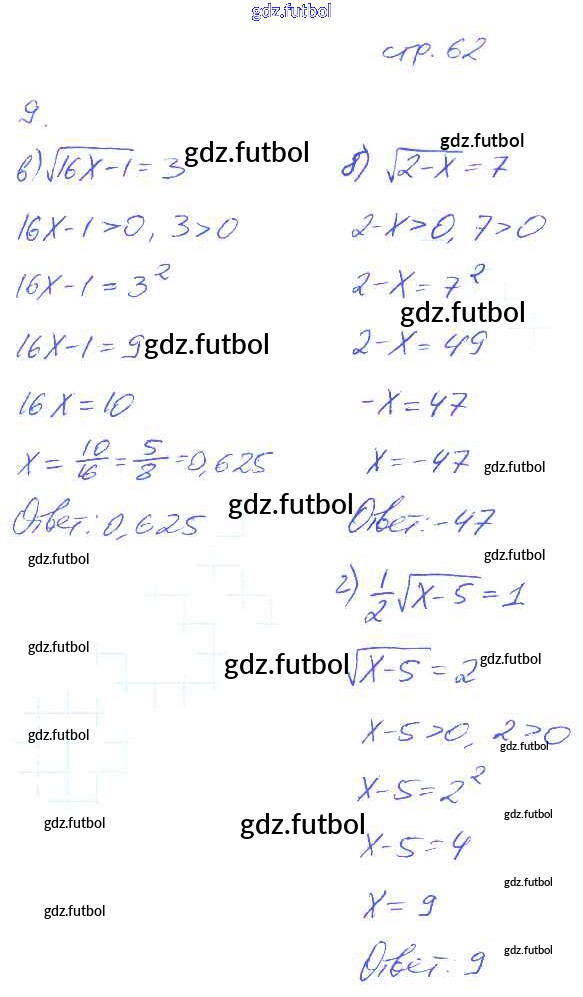 gdz.futbol
стр. 62
9.
в) √16x-1 = 3 gdz.futbol
16x-1>0, 3>0
16x-1=3²
16x-1=9 gdz.futbol
16x=10
x = 10/16 = 5/8 = 0,625
Ответ: 0,625 gdz.futbol
gdz.futbol
gdz.futbol
gdz.futbol
gdz.futbol
gdz.futbol
gdz.futbol
б) √2-x = 7
2-x>0, 7>0
2-x=7²
gdz.futbol
2-x=49
-x=47
x=-47 gdz.futbol
Ответ: -47
gdz.futbol
г) 1/2 √x-5 = 1
gdz.futbol √x-5 = 2 gdz.futbol
x-5>0, 2>0
gdz.futbol
x-5=2²
gdz.futbol
gdz.futbol
x-5=4
gdz.futbol
x=9
Ответ: 9 gdz.futbol